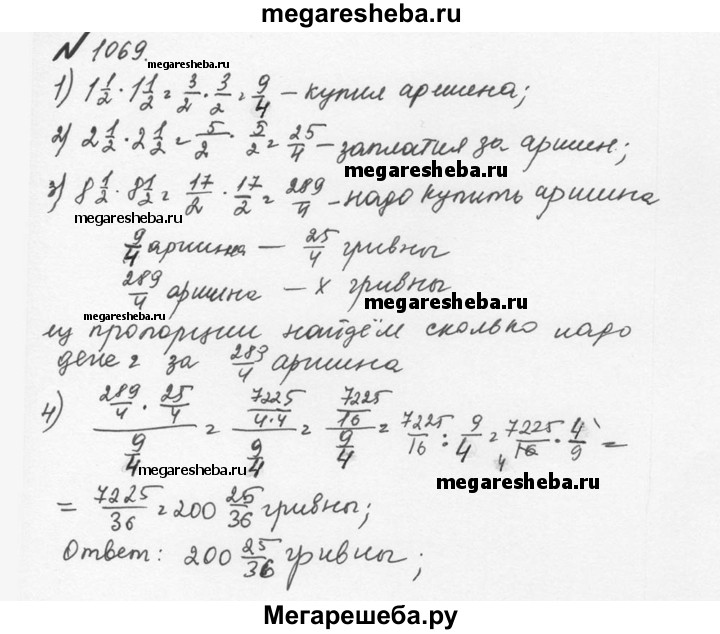 megaresheba.ru
N 1069.
megaresheba.ru
1) 1 1/2 · 1 1/2 = 3/2 · 3/2 = 9/4 – купил аршина;
2) 2 1/2 · 2 1/2 = 5/2 · 5/2 = 25/4 – заплатил за аршин;
megaresheba.ru
3) 8 1/2 · 8 1/2 = 17/2 · 17/2 = 289/4 – надо купить аршина
megaresheba.ru
9/4 аршина — 25/4 гривны
289/4 аршина — x гривны
megaresheba.ru
megaresheba.ru
из пропорции найдём сколько надо
денег за 289/4 аршина
4) (289/4 · 25/4)/(9/4) = (7225/(4·4))/(9/4) = (7225/16)/(9/4) = 7225/16 : 9/4 = 7225/16 4 · 4/9 =
megaresheba.ru
megaresheba.ru
= 7225/36 = 200 25/36 гривны;
Ответ: 200 25/36 гривны;
Мегарешеба.ру